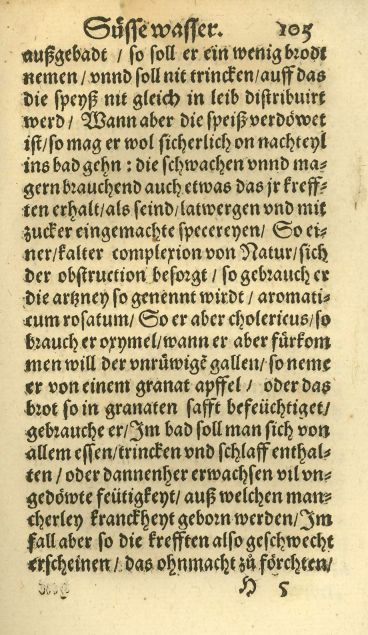 Süsse wasser. 105
außgebadt / so soll er ein wenig brodt
nemen / vnnd soll nit trincken / auff das
die speyß nit gleich in leib distribuirt
werd / Wann aber die speiß verdöwet
ist / so mag er wol sicherlich on nachteyl
ins bad gehn : die schwachen vnnd ma⸗
gern brauchend auch etwas das jr kreff⸗
ten erhalt / als seind / latwergen vnd mit
zucker eingemachte specereyen / So ei⸗
ner / kalter complexion von Natur / sich
der obstruction besorgt / so gebrauch er
die artzney so genennt wirdt / aromati⸗
cum rosatum / So er aber cholericus / so
brauch er oxymel / wann er aber fürkom
men will der vnrüwigē gallen / so neme
er von einem granat apffel / oder das
brot so in granaten safft befeüchtiget /
gebrauche er / Im bad soll man sich von
allem essen / trincken vnd schlaff enthal⸗
ten / oder dannenher erwachsen vil vn⸗
gedöwte feütigkeyt / auß welchen man⸗
cherley kranckheyt geborn werden / Im
fall aber so die krefften also geschwecht
erscheinen / das ohnmacht zů förchten /
H 5